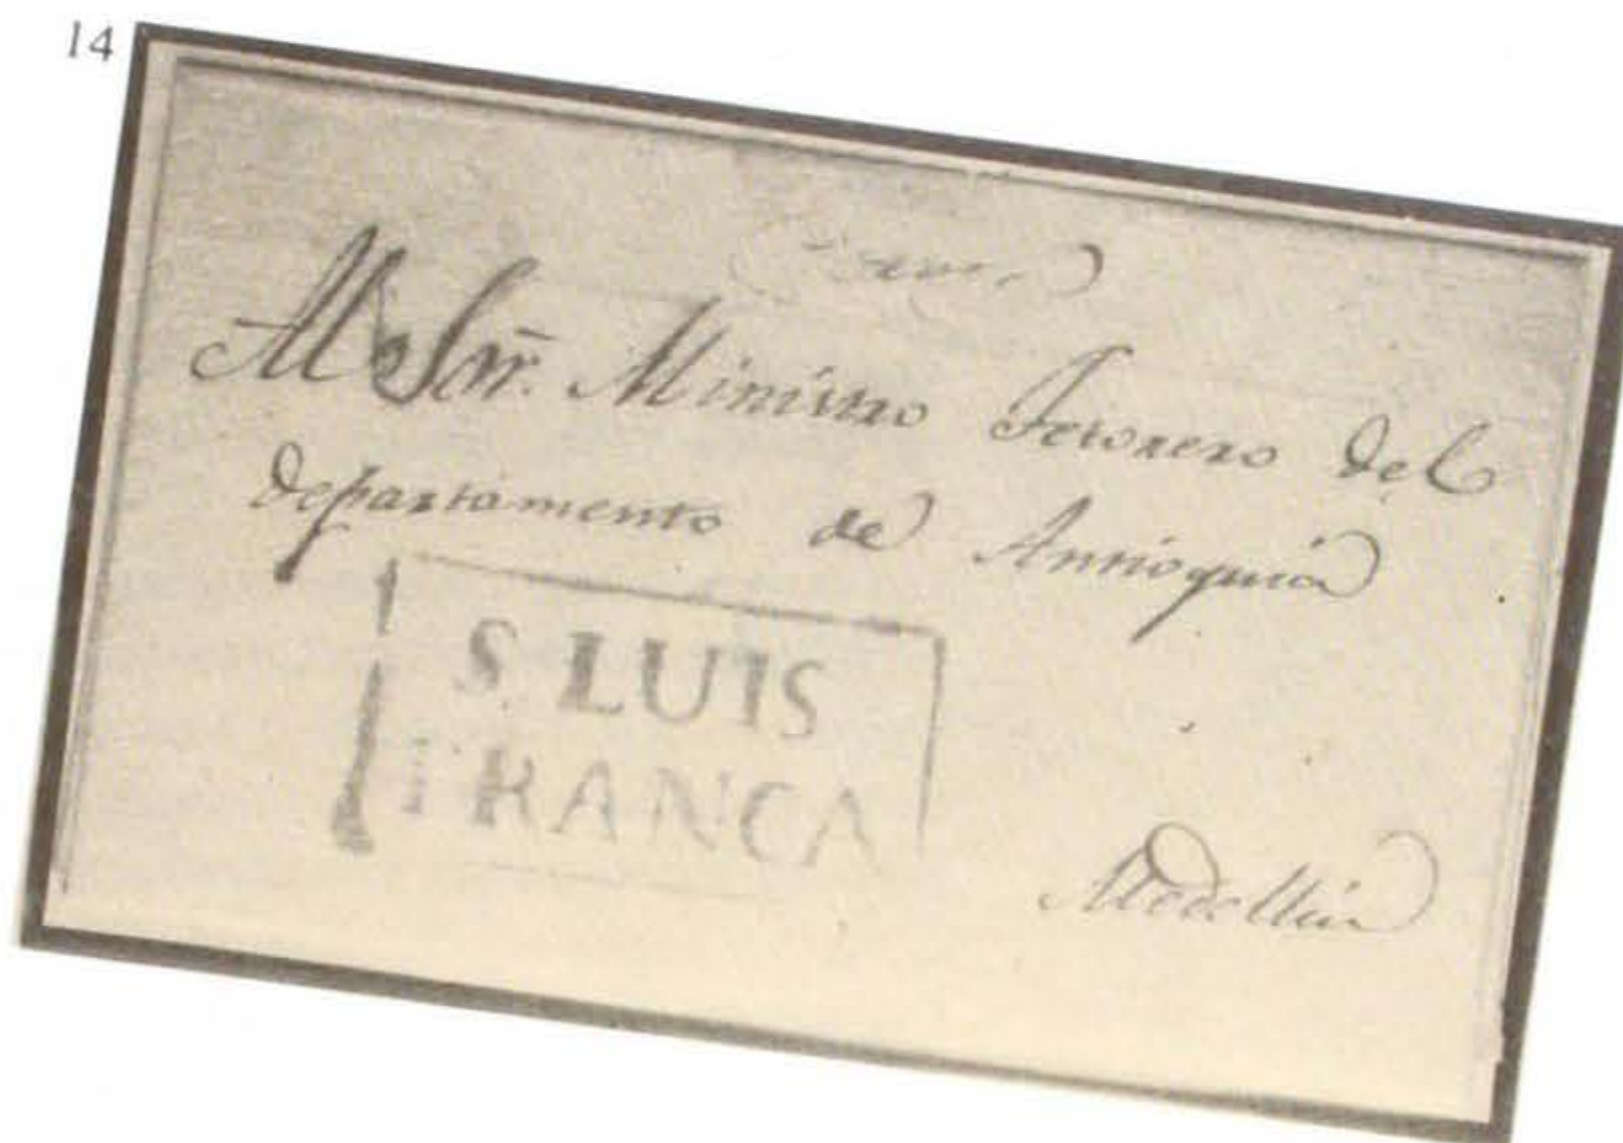 14
Al Señr. Ministro Tesorero del
departamento de Antioquia
S LUIS
FRANCA
Medellín